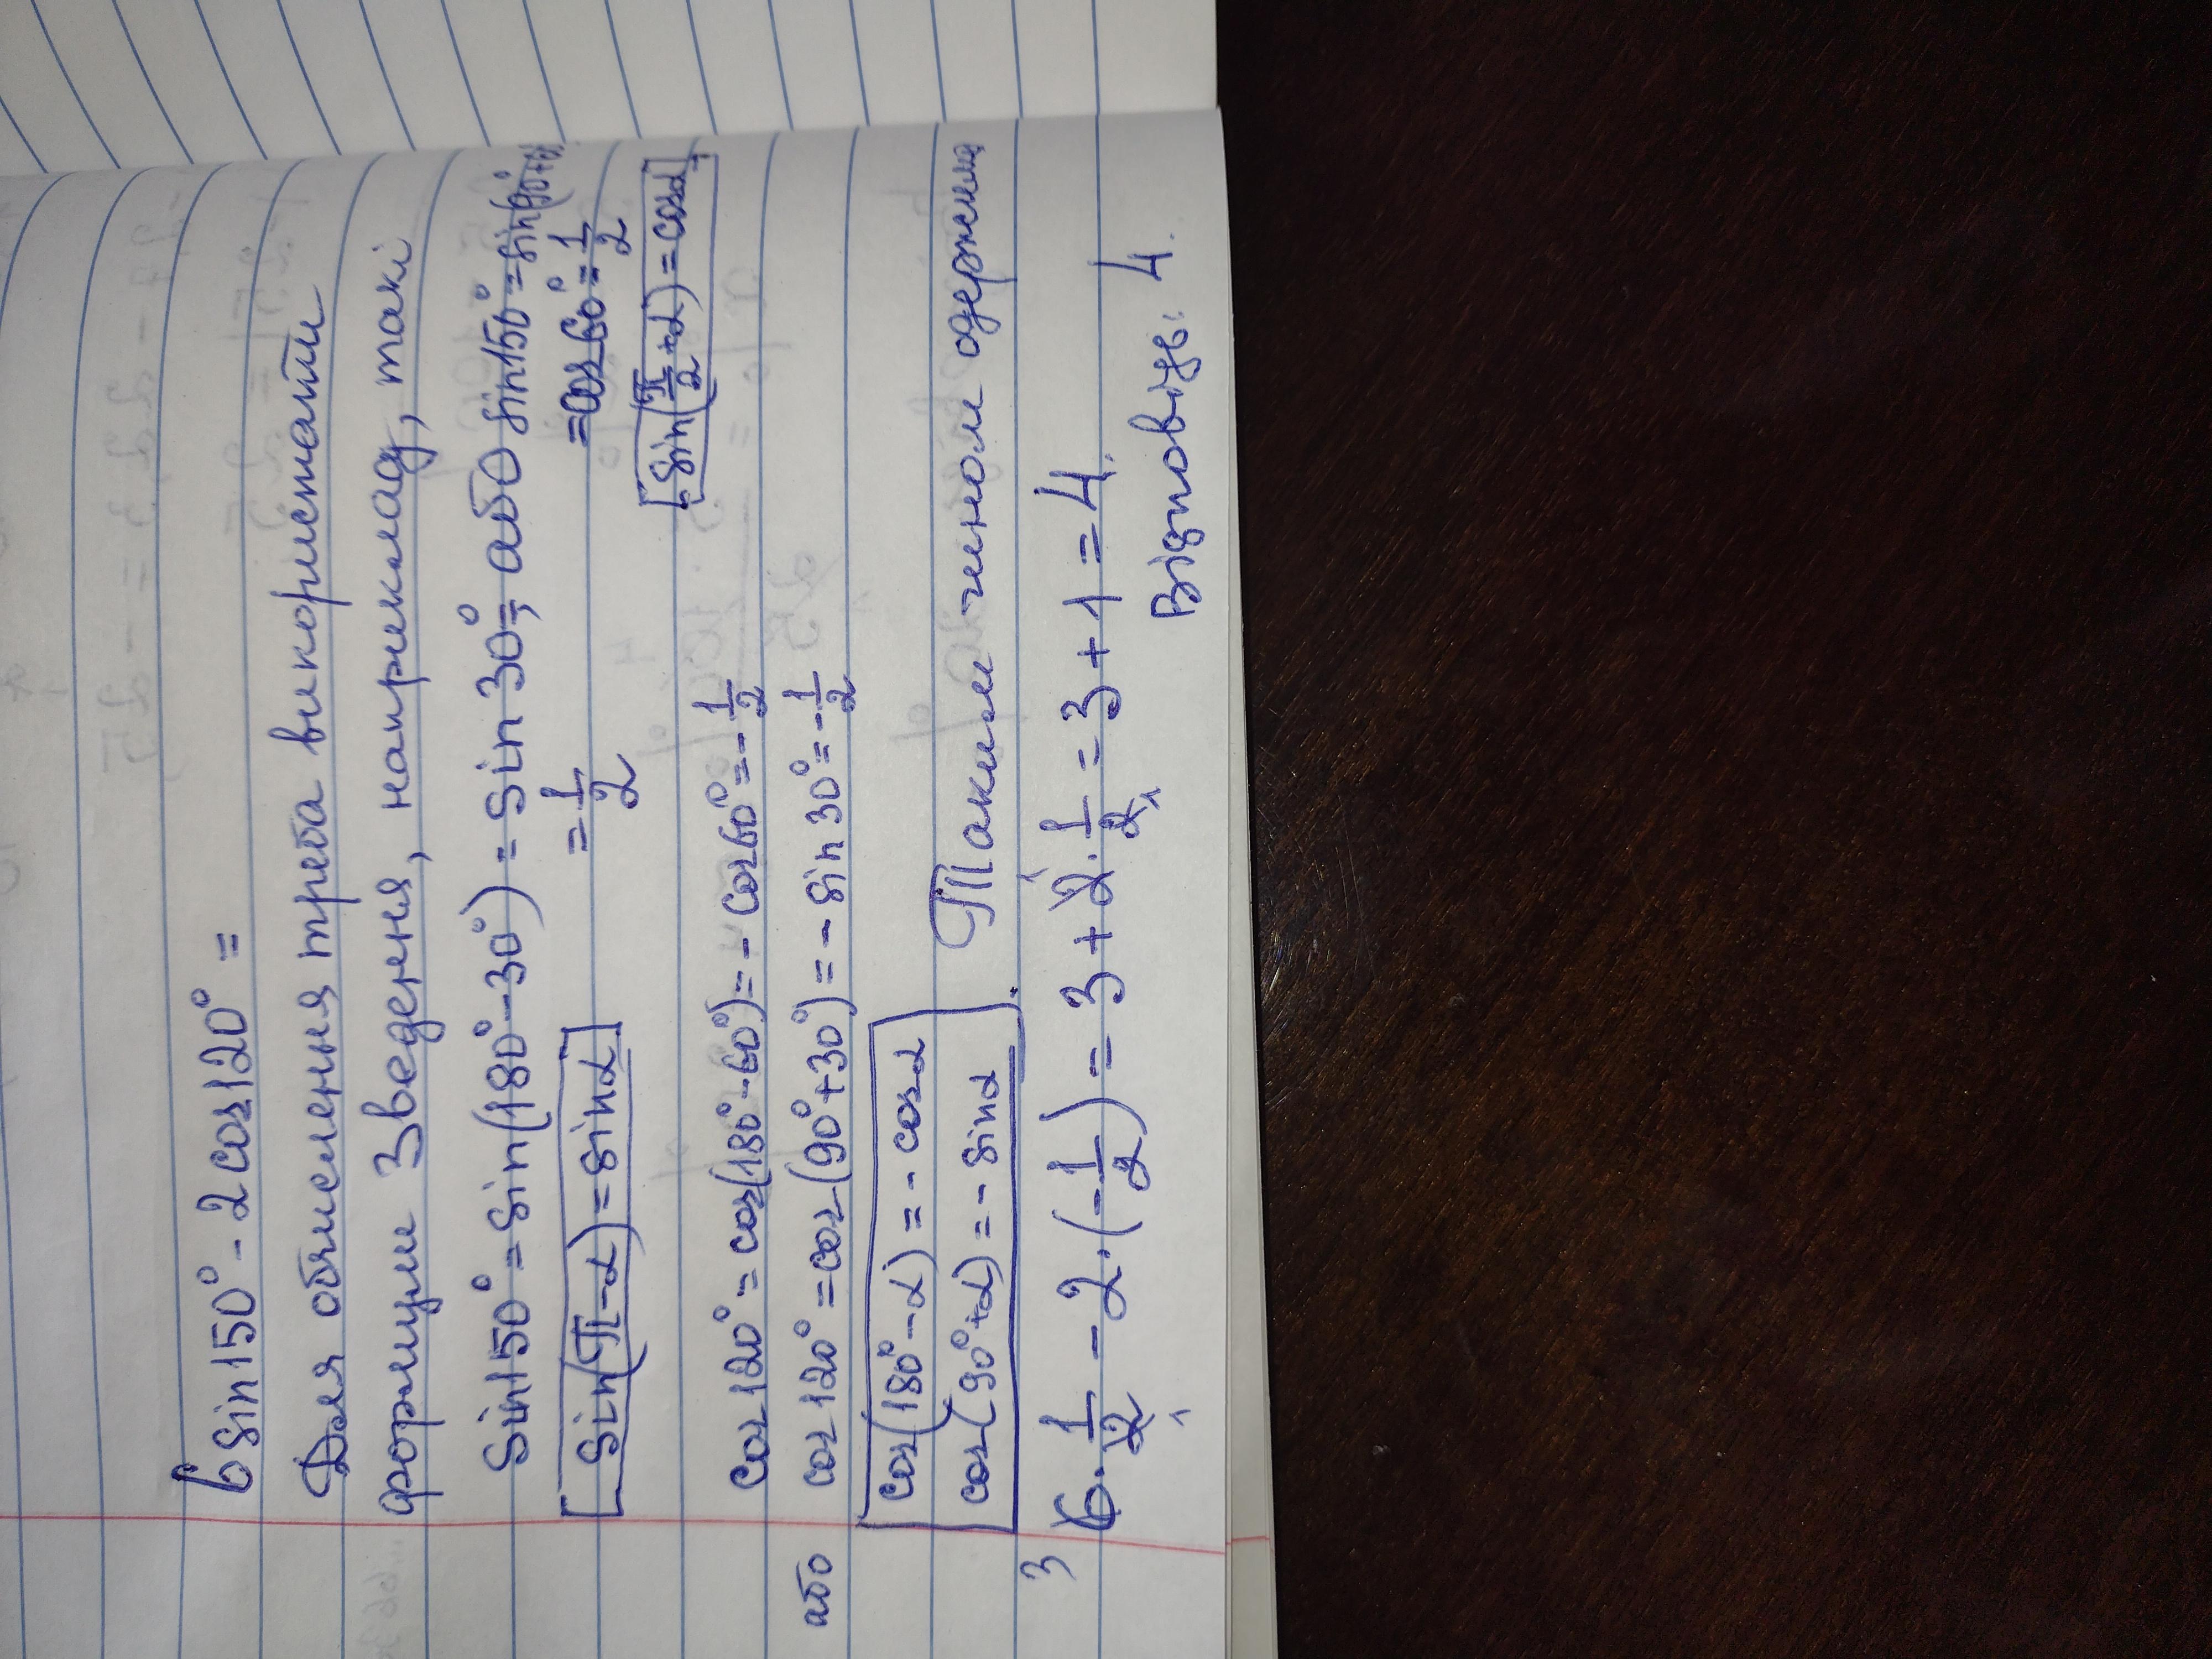 6 sin150° - 2cos120° =
Для обчислення треба використати
формули зведення, наприклад, такі
sin150° = sin(180° - 30°) = sin 30° =; або sin150° = sin(90°+60°)
= 1/2 = cos 60° = 1/2
[sin(π - α) = sinα] [sin(π/2 + α) = cosα]
cos120° = cos(180° - 60°) = - cos60° = - 1/2
або cos120° = cos(90° + 30°) = - sin 30° = - 1/2
cos(180° - α) = - cosα
cos(90° + α) = - sinα. Таким чином одержимо
6 · 1/2 - 2 · (- 1/2) = 3 + 2 · 1/2 = 3 + 1 = 4.
Відповідь: 4.